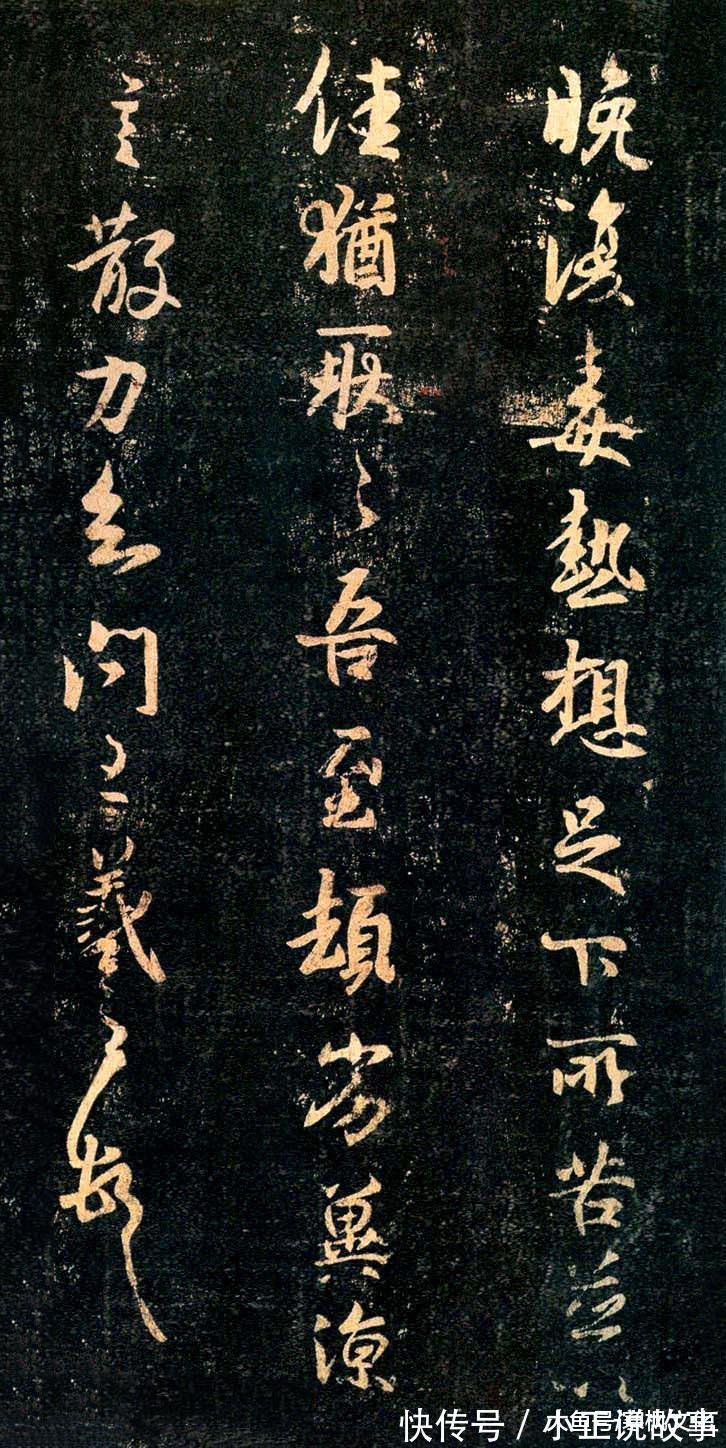 晚復毒熱想足下所苦並以
佳猶耿々吾至頓劣冀涼
言散力知問王羲之頓首
快传号 / 小正说故事